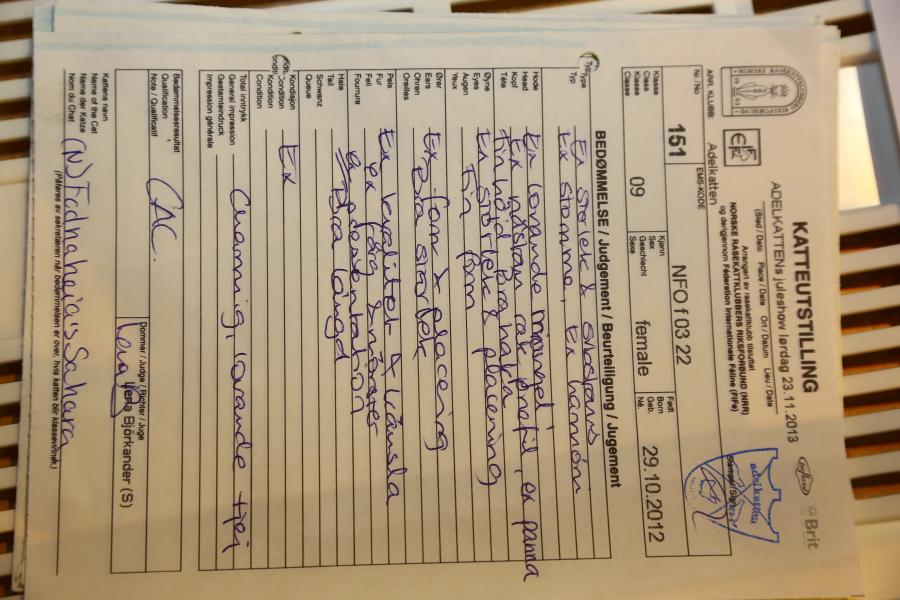 NORSKE RASEKATTKLUBBERS RIKSFORBUND
Brit
KATTEUTSTILLING
ADELKATTENs juleshow lørdag 23.11.2013
(Sted / Dato Place / Date Ort / Datum Lieu / Date)
Arrangert av rasekattklubb tilsluttet
NORSKE RASEKATTKLUBBERS RIKSFORBUND (NRR)
og derigjennom Fédération Internationale Féline (FIFe)
adelkatten
Stempel/Sign
ARR. KLUBB:
Adelkatten
Nr./No
151
EMS-KODE
NFO f 03 22
Klasse
Class
Klasse
Classe
09
Kjønn
Sex
Geschlecht
Sexe
female
Født
Born
Geb.
Né.
29.10.2012
BEDØMMELSE / Judgement / Beurteiligung / Jugement
Type
Typ
Ex storlek & kroppens
Ex stomme, ex harmoni
Hode
Head
Kopf
Tête
Ex lovande mängel
Ex näsrygg rak profil, ex panna
fin höjd bra haka
Øyne
Eyes
Augen
Yeux
Ex storlek & placering
Fin form
Ører
Ears
Ohren
Oreilles
Ex form & placering
Bra storlek
Pels
Fur
Fell
Fourrure
Ex kvalitet & känsla
ex färg & mönster
Hale
Tail
Schwanz
Queue
Bra längd
Kondisjon
Condition
Kondition
Condition
Ex
Total inntrykk
General impression
Gestamteindruck
Impression générale
Charmig, lovande tjej
Bedømmelsesresultat
Qualification
Note / Qualificatif
CAC.
Dommer / Judge / Richter / Juge
Björkander (S)
Kattens navn
Name of the Cat
Name der Katze
Nom du Chat
(N) Fadnaheias Sahara
(Påføres av sekretæren når bedømmelsen er over, hvis katten blir klassevinner.)